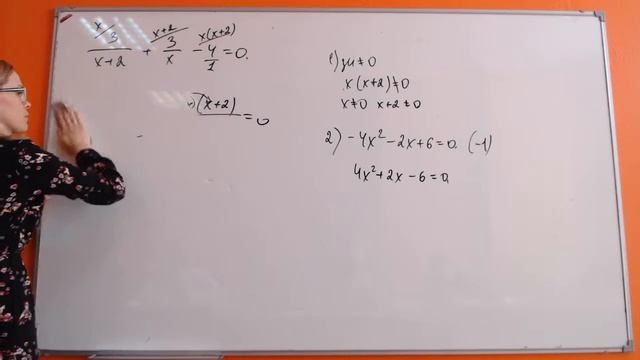 x x+2 x(x+2)
3/(x+2) + 3/x - 4/1 = 0.
(x+2) = 0
1) зн ≠ 0
x(x+2) ≠ 0
x ≠ 0 x+2 ≠ 0
2) -4x² - 2x + 6 = 0 (-1)
4x² + 2x - 6 = 0